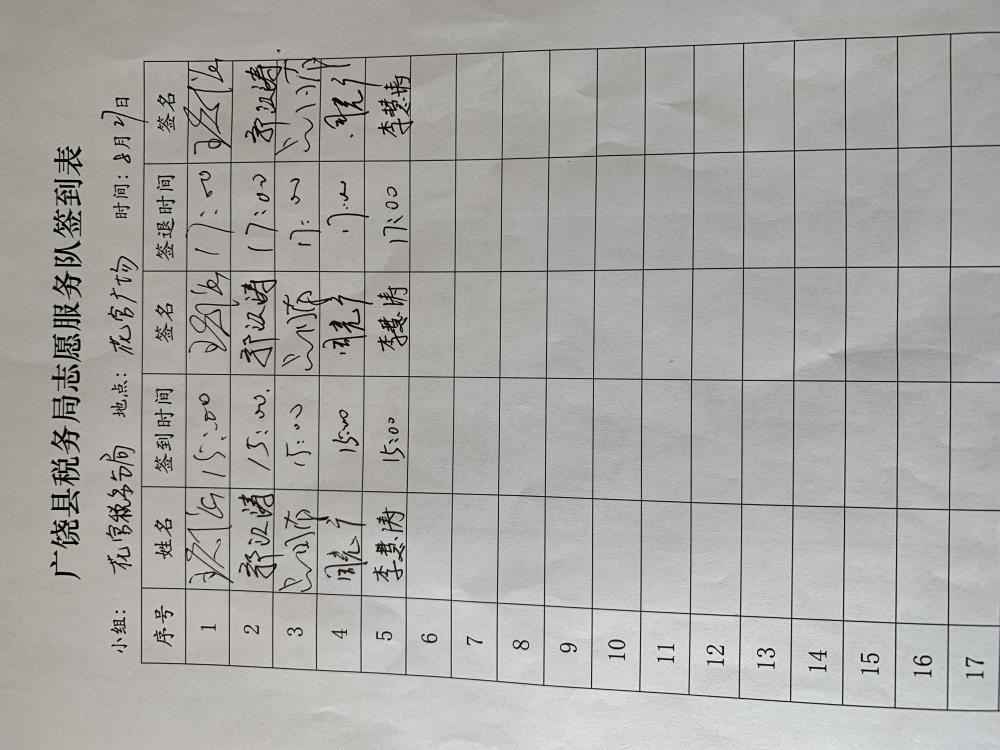 广饶县税务局志愿服务队签到表
小组: 花官税务分局 地点: 花官广场 时间: 8月27日
序号 姓名 签到时间 签名 签退时间 签名
1 15:00 17:00
2 郭汉涛 15:00. 郭汉涛 17:00 郭汉涛
3 15:00 17:00
4 15:00 17:00
5 李慧涛 15:00 李慧涛 17:00 李慧涛
6
7
8
9
10
11
12
13
14
15
16
17